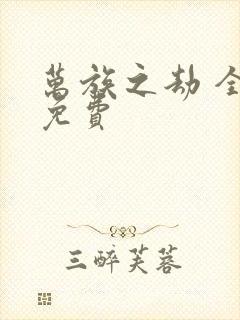 萬族之劫 全
免費
三醉芙蓉